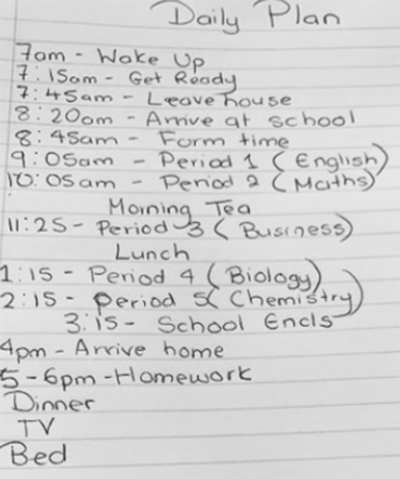 Daily Plan
7am - Wake Up
7:15am - Get Ready
7:45am - Leave house
8:20am - Arrive at school
8:45am - Form time
9:05am - Period 1 (English)
10:05am - Period 2 (Maths)
Morning Tea
11:25 - Period 3 (Business)
Lunch
1:15 - Period 4 (Biology)
2:15 - Period 5 (Chemistry)
3:15 - School Ends
4pm - Arrive home
5-6pm - Homework
Dinner
TV
Bed